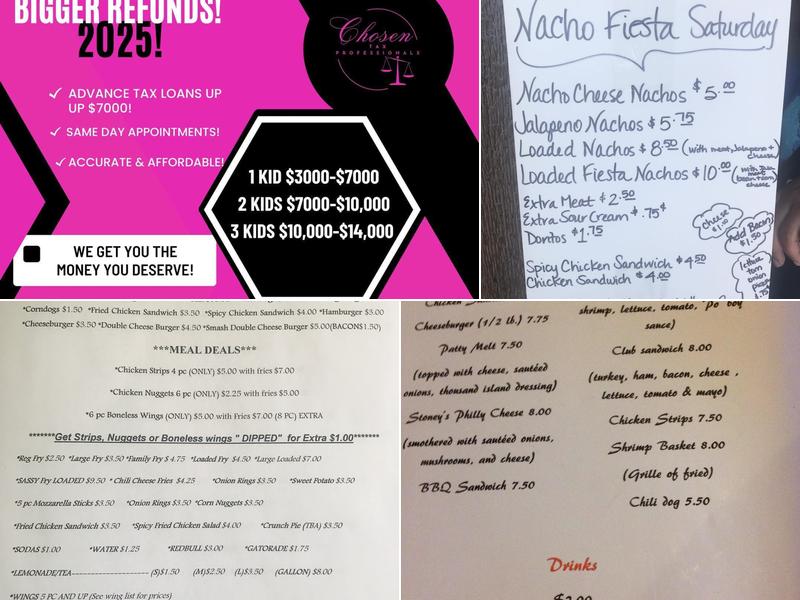 BIGGER REFUNDS!
2025!
ADVANCE TAX LOANS UP
UP $7000!
SAME DAY APPOINTMENTS!
ACCURATE & AFFORDABLE!
WE GET YOU THE
MONEY YOU DESERVE!
Chosen
TAX
PROFESSIONALS
1 KID $3000-$7000
2 KIDS $7000-$10,000
3 KIDS $10,000-$14,000
Nacho Fiesta Saturday
Nacho Cheese Nachos $5.00
Jalapeno Nachos $5.75
Loaded Nachos $8.50 (with meat, Jalapeno +
cheese)
Loaded Fiesta Nachos $10.00 (with Jala
meat
bean + corn
cheese
Extra Meat $2.50
Extra Sour Cream $.75¢
Doritos $1.75
Cheese
$1.00
Add Bacon
$1.50
Spicy Chicken Sandwich $4.50
Chicken Sandwich $4.00
lettuce
tom
onion
.75
*Corndogs $1.50 *Fried Chicken Sandwich $3.50 *Spicy Chicken Sandwich $4.00 *Hamburger $3.00
*Cheeseburger $3.50 *Double Cheese Burger $4.50 *Smash Double Cheese Burger $5.00(BACON$1.50)
***MEAL DEALS***
*Chicken Strips 4 pc (ONLY) $5.00 with fries $7.00
*Chicken Nuggets 6 pc (ONLY) $2.25 with fries $5.00
*6 pc Boneless Wings (ONLY) $5.00 with Fries $7.00 (8 PC) EXTRA
*******Get Strips, Nuggets or Boneless wings " DIPPED" for Extra $1.00*******
*Reg Fry $2.50 *Large Fry $3.50 *Family Fry $ 4.75 *Loaded Fry $4.50 *Large Loaded $7.00
*SASSY Fry LOADED $9.50 * Chili Cheese Fries $4.25 *Onion Rings $3.50 *Sweet Potato $3.50
*5 pc Mozzarella Sticks $3.50 *Onion Rings $3.50 *Corn Nuggets $3.50
*Fried Chicken Sandwich $3.50 *Spicy Fried Chicken Salad $4.00 *Crunch Pie (TBA) $3.50
*SODAS $1.00 *WATER $1.25 *REDBULL $3.00 *GATORADE $1.75
*LEMONADE/TEA-------------------- (S)$1.50 (M)$2.50 (L)$3.50 (GALLON) $8.00
*WINGS 5 PC AND UP (See wing list for prices)
Chicken
Cheeseburger (1/2 lb.) 7.75
Patty Melt 7.50
(topped with cheese, sautéed
onions, thousand island dressing)
Stoney's Philly Cheese 8.00
(smothered with sautéed onions,
mushrooms, and cheese)
BBQ Sandwich 7.50
shrimp, lettuce, tomato, "Po' boy
sauce)
Club sandwich 8.00
(turkey, ham, bacon, cheese ,
lettuce, tomato & mayo)
Chicken Strips 7.50
Shrimp Basket 8.00
(Grille of fried)
Chili dog 5.50
Drinks